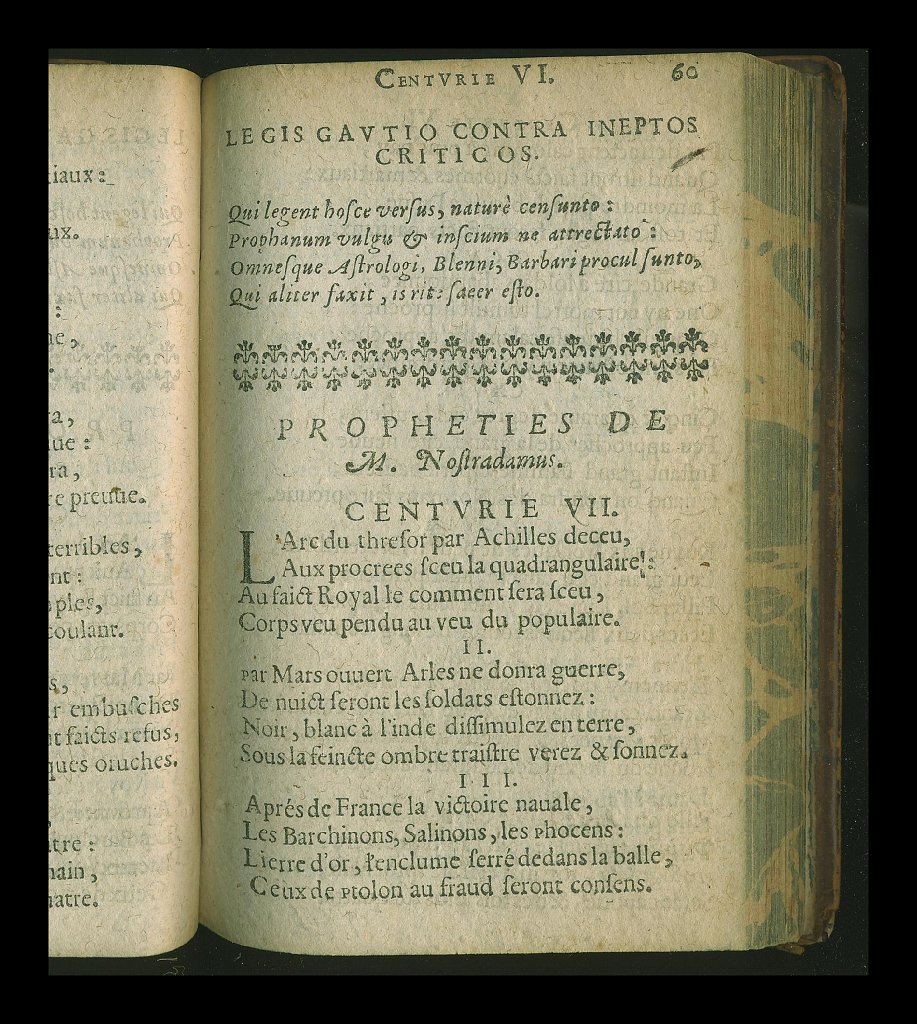 iaux:
ux.
:
ne,
a,
ue:
ra,
e preuue.
terribles,
nt:
ples,
coulant.
s,
r embusches
t faicts refus,
ques oruches.
tre:
nain,
atre.
CENTVRIE VI. 60
LEGIS GAVTIO CONTRA INEPTOS
CRITICOS.
Qui legent hosce versus, naturè censunto:
Prophanum vulgu & inscium ne attrectato:
Omnesque Astrologi, Blenni, Barbari procul sunto,
Qui aliter faxit, is rit: sacer esto.
PROPHETIES DE
M. Nostradamus.
CENTVRIE VII.
L'Arc du thresor par Achilles deceu,
Aux procrees sceu la quadrangulaire:
Au faict Royal le comment sera sceu,
Corps veu pendu au veu du populaire.
II.
Par Mars ouuert Arles ne donra guerre,
De nuict seront les soldats estonnez:
Noir, blanc à l'inde dissimulez en terre,
Sous la feincte ombre traistre verez & sonnez.
III.
Aprés de France la victoire nauale,
Les Barchinons, Salinons, les Phocens:
Lierre d'or, l'enclume serré dedans la balle,
Ceux de Ptolon au fraud seront consens.